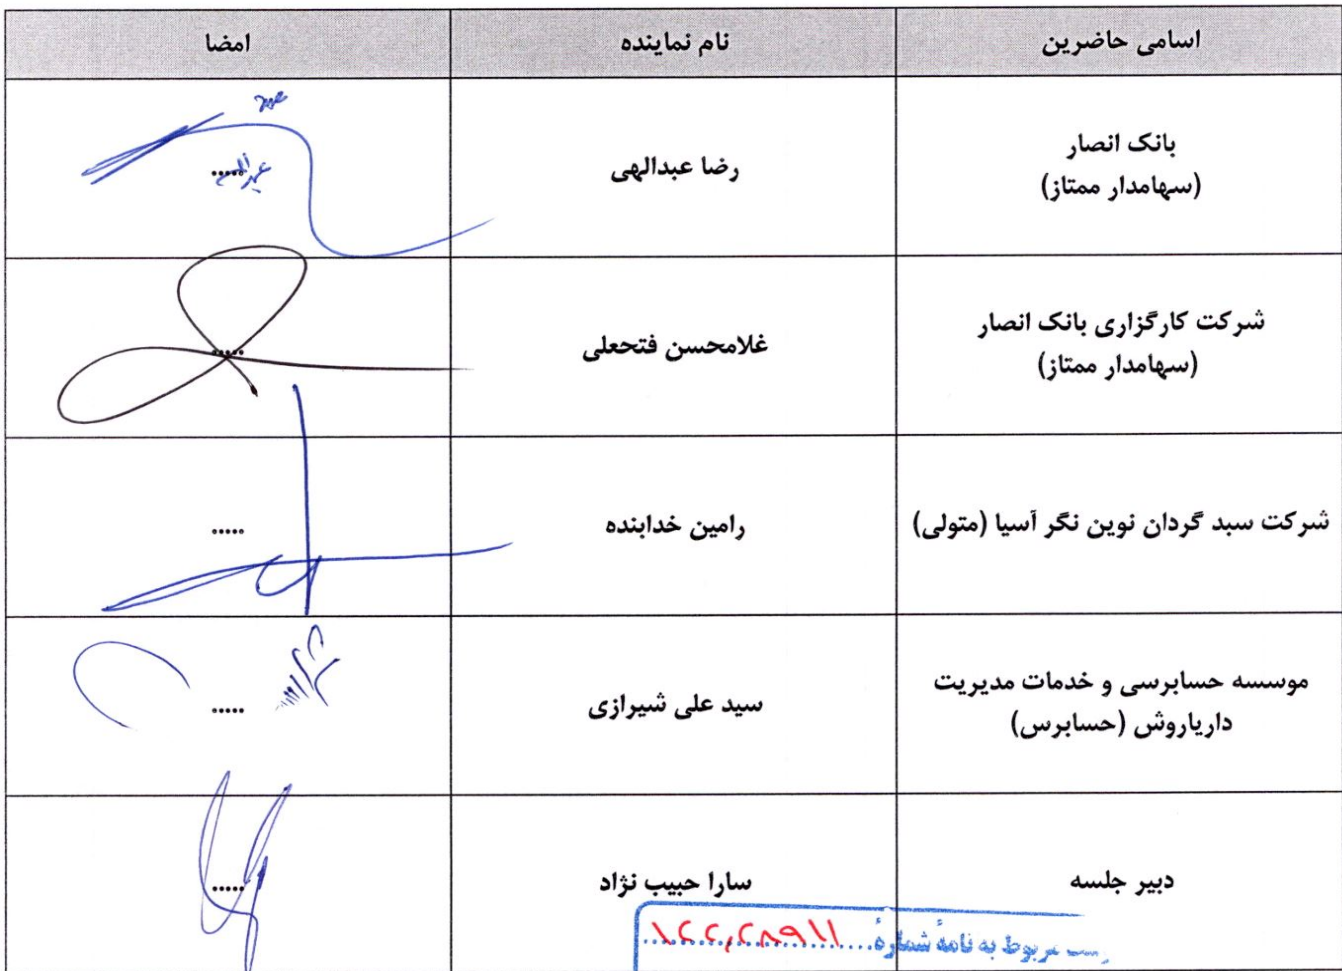 اسامی حاضرین نام نماینده امضا
بانک انصار
(سهامدار ممتاز)
رضا عبدالهی
.....
شرکت کارگزاری بانک انصار
(سهامدار ممتاز)
غلامحسن فتحعلی
.....
شرکت سبد گردان نوین نگر آسیا (متولی)
رامین خدابنده
.....
موسسه حسابرسی و خدمات مدیریت
داریاروش (حسابرس)
سید علی شیرازی
.....
دبیر جلسه
سارا حبیب نژاد
.....
مربوط به نامهٔ شمارهٔ